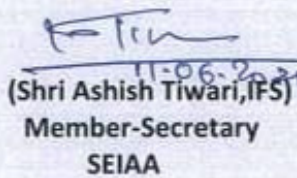 11-06-202
(Shri Ashish Tiwari,IFS)
Member-Secretary
SEIAA